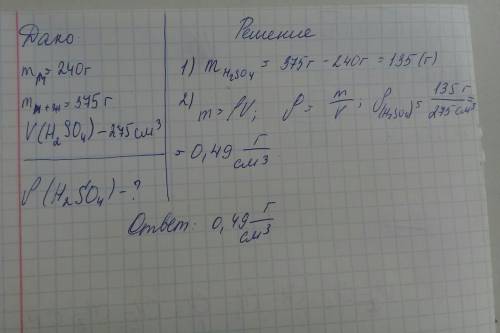 Дано:
m м = 240г
m м+ж = 375г
V(H₂SO₄) – 275 см³
ρ(H₂SO₄) – ?
Решение
1) m H₂SO₄ = 375г – 240г = 135(г)
2) m = ρV; ρ = m/V; ρ(H₂SO₄) = 135г/275см³ =
= 0,49 г/см³
Ответ: 0,49 г/см³